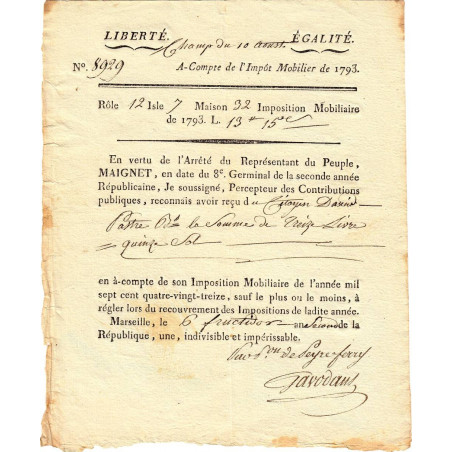 LIBERTÉ. ÉGALITÉ.
Champ du 10 Aoust
N.º 8929 A-Compte de l'Impôt Mobilier de 1793.
Rôle 12 Isle 7 Maison 32 Imposition Mobiliaire
de 1793. L. 13 15
En vertu de l'Arrêté du Représentant du Peuple,
MAIGNET, en date du 8º. Germinal de la seconde année
Républicaine, Je soussigné, Percepteur des Contributions
publiques, reconnais avoir reçu du Citoyen David
Pastre la Somme de treize Livre
quinze Sol
en à-compte de son Imposition Mobiliaire de l'année mil
sept cent quatre-vingt-treize, sauf le plus ou le moins, à
régler lors du recouvrement des Impositions de ladite année.
Marseille, le 6 fructidor an Second de la
République, une, indivisible et impérissable.
de Peyre ferry